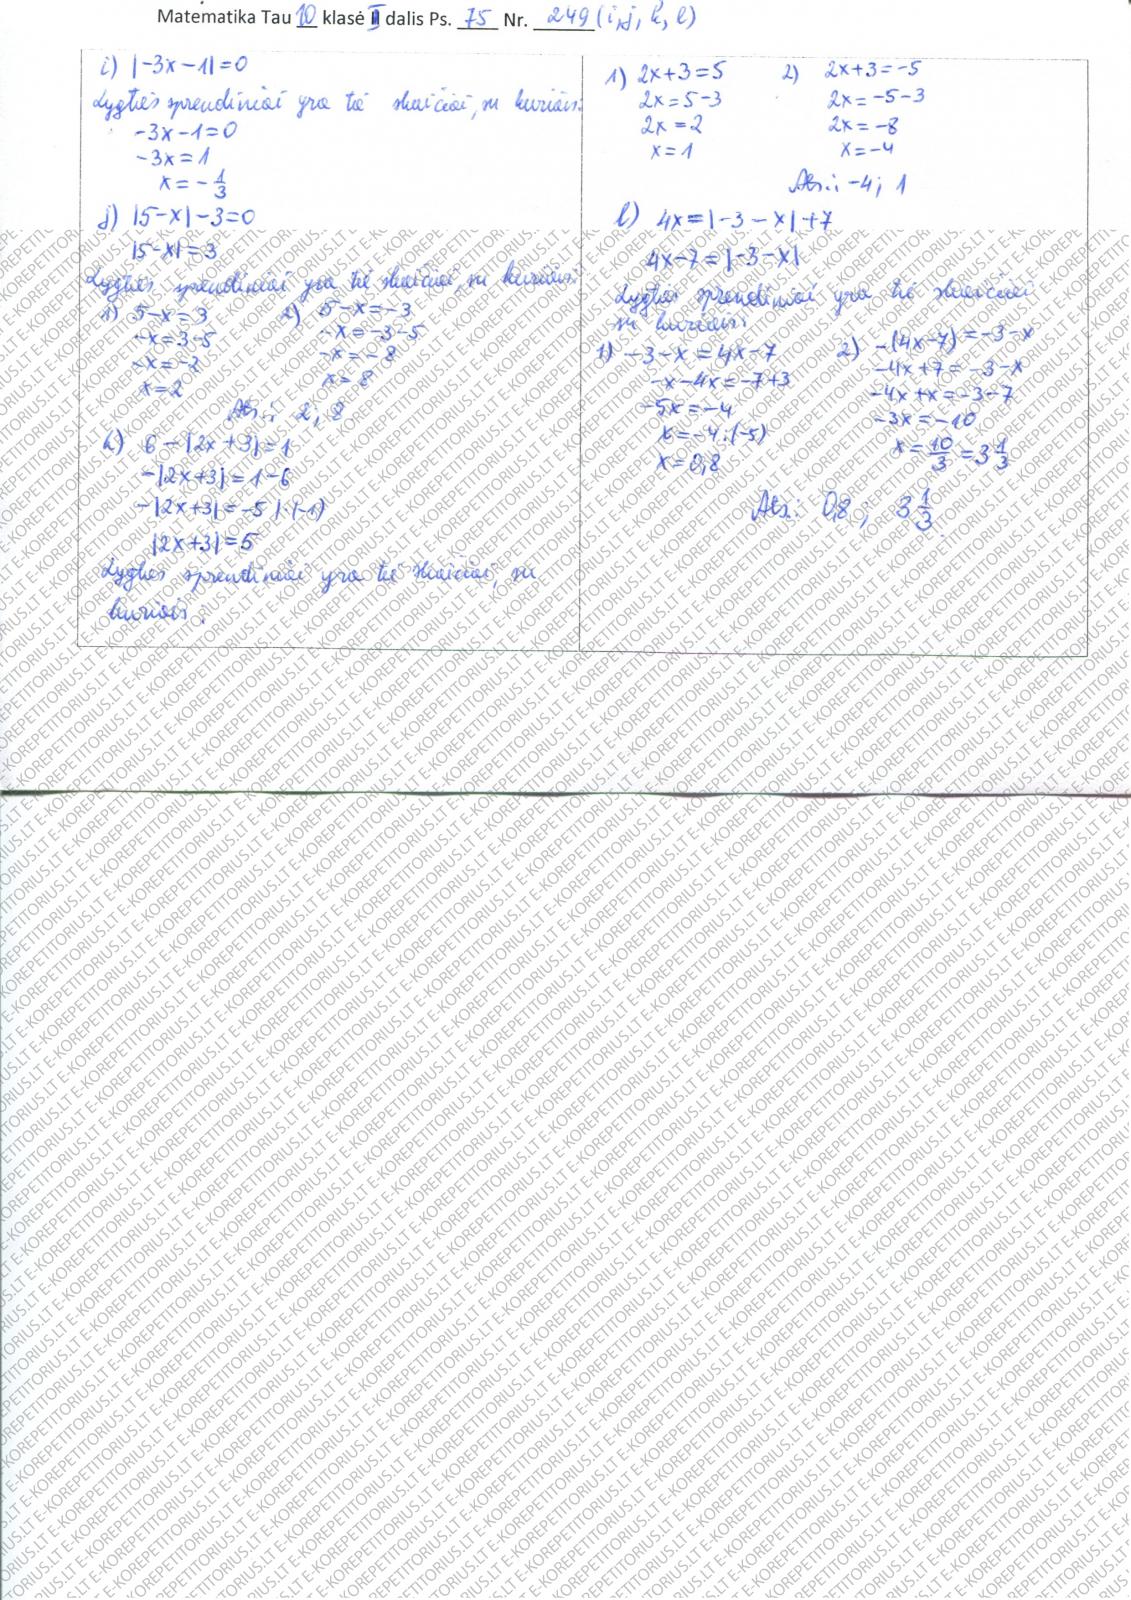 Matematika Tau 10 klasė II dalis Ps. 75 Nr. 249 (i, j, k, l)
i) |-3x-1|=0
Lygties sprendiniai yra tie skaičiai, su kuriais:
-3x-1=0
-3x=1
x=-1/3
j) |5-x|-3=0
|5-x|=3
Lygties sprendiniai yra tie skaičiai, su kuriais:
1) 5-x=3 2) 5-x=-3
-x=3-5 -x=-3-5
-x=-2 -x=-8
x=2 x=8
Ats.: 2, 8
k) 6-|2x+3|=1
-|2x+3|=1-6
-|2x+3|=-5 |·(-1)
|2x+3|=5
Lygties sprendiniai yra tie skaičiai, su
kuriais:
1) 2x+3=5 2) 2x+3=-5
2x=5-3 2x=-5-3
2x=2 2x=-8
x=1 x=-4
Ats.: -4; 1
l) 4x=|-3-x|+7
4x-7=|-3-x|
Lygties sprendiniai yra tie skaičiai
su kuriais:
1) -3-x=4x-7 2) -(4x-7)=-3-x
-x-4x=-7+3 -4x+7=-3-x
-5x=-4 -4x+x=-3-7
x=-4:(-5) -3x=-10
x=0,8 x=10/3=3 1/3
Ats.: 0,8, 3 1/3
E-KOREPETITORIUS.LT